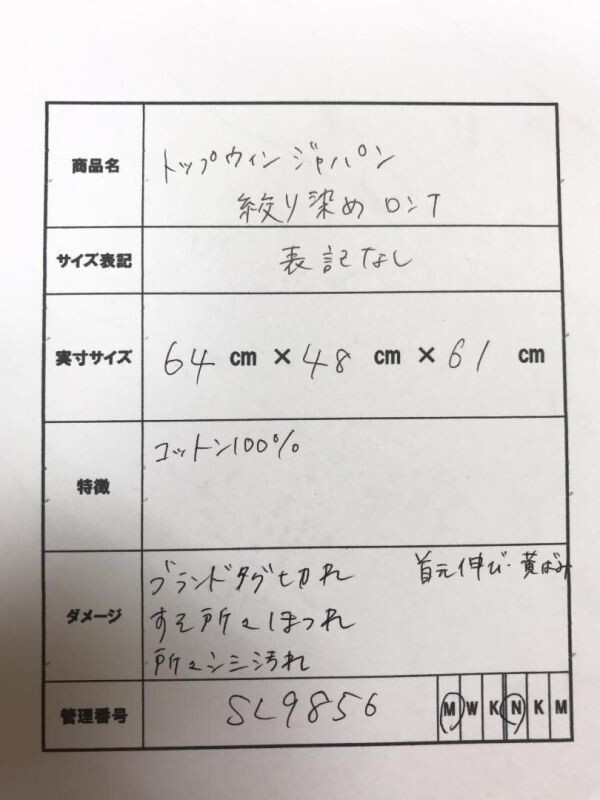 商品名
トップウィンジャパン
絞り染めロンT
サイズ表記
表記なし
実寸サイズ
64 cm × 48 cm × 61 cm
特徴
コットン100%
ダメージ
ブランドタグ切れ 首元伸び・黄ばみ
すそ所々ほつれ
所々シミ汚れ
管理番号
SL9856
M W K N K M